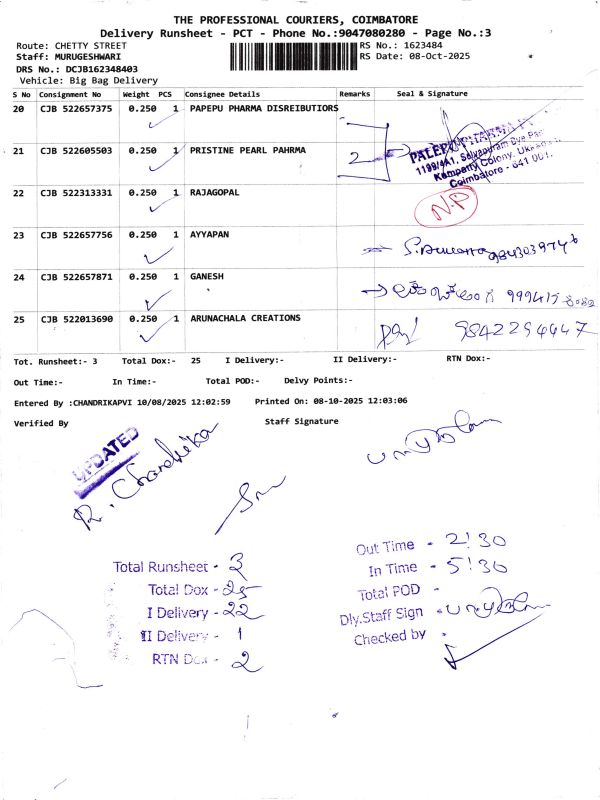 THE PROFESSIONAL COURIERS, COIMBATORE
Delivery Runsheet - PCT - Phone No.:9047080280 - Page No.:3
Route: CHETTY STREET
RS No.: 1623484
Staff: MURUGESHWARI
RS Date: 08-Oct-2025
DRS No.: DCJB162348403
Vehicle: Big Bag Delivery
S No Consignment No Weight PCS Consignee Details Remarks Seal & Signature
20 CJB 522657375 0.250 1 PAPEPU PHARMA DISREIBUTIORS
21 CJB 522605503 0.250 1 PRISTINE PEARL PAHRMA 2
PALEPU PHARMA
1199/4A1, Sathyapuram Bye Pass
Kampatty Colony, Ukkadam
Coimbatore - 641 001.
22 CJB 522313331 0.250 1 RAJAGOPAL N.P
23 CJB 522657756 0.250 1 AYYAPAN
24 CJB 522657871 0.250 1 GANESH
25 CJB 522013690 0.250 1 ARUNACHALA CREATIONS 9842294447
Tot. Runsheet:- 3 Total Dox:- 25 I Delivery:- II Delivery:- RTN Dox:-
Out Time:- In Time:- Total POD:- Delvy Points:-
Entered By :CHANDRIKAPVI 10/08/2025 12:02:59 Printed On: 08-10-2025 12:03:06
Verified By Staff Signature
UPDATED
R. Chandrika
Total Runsheet - 3
Total Dox - 25
I Delivery - 22
II Delivery - 1
RTN Dox - 2
Out Time - 2:30
In Time - 5:30
Total POD -
Dly.Staff Sign -
Checked by -